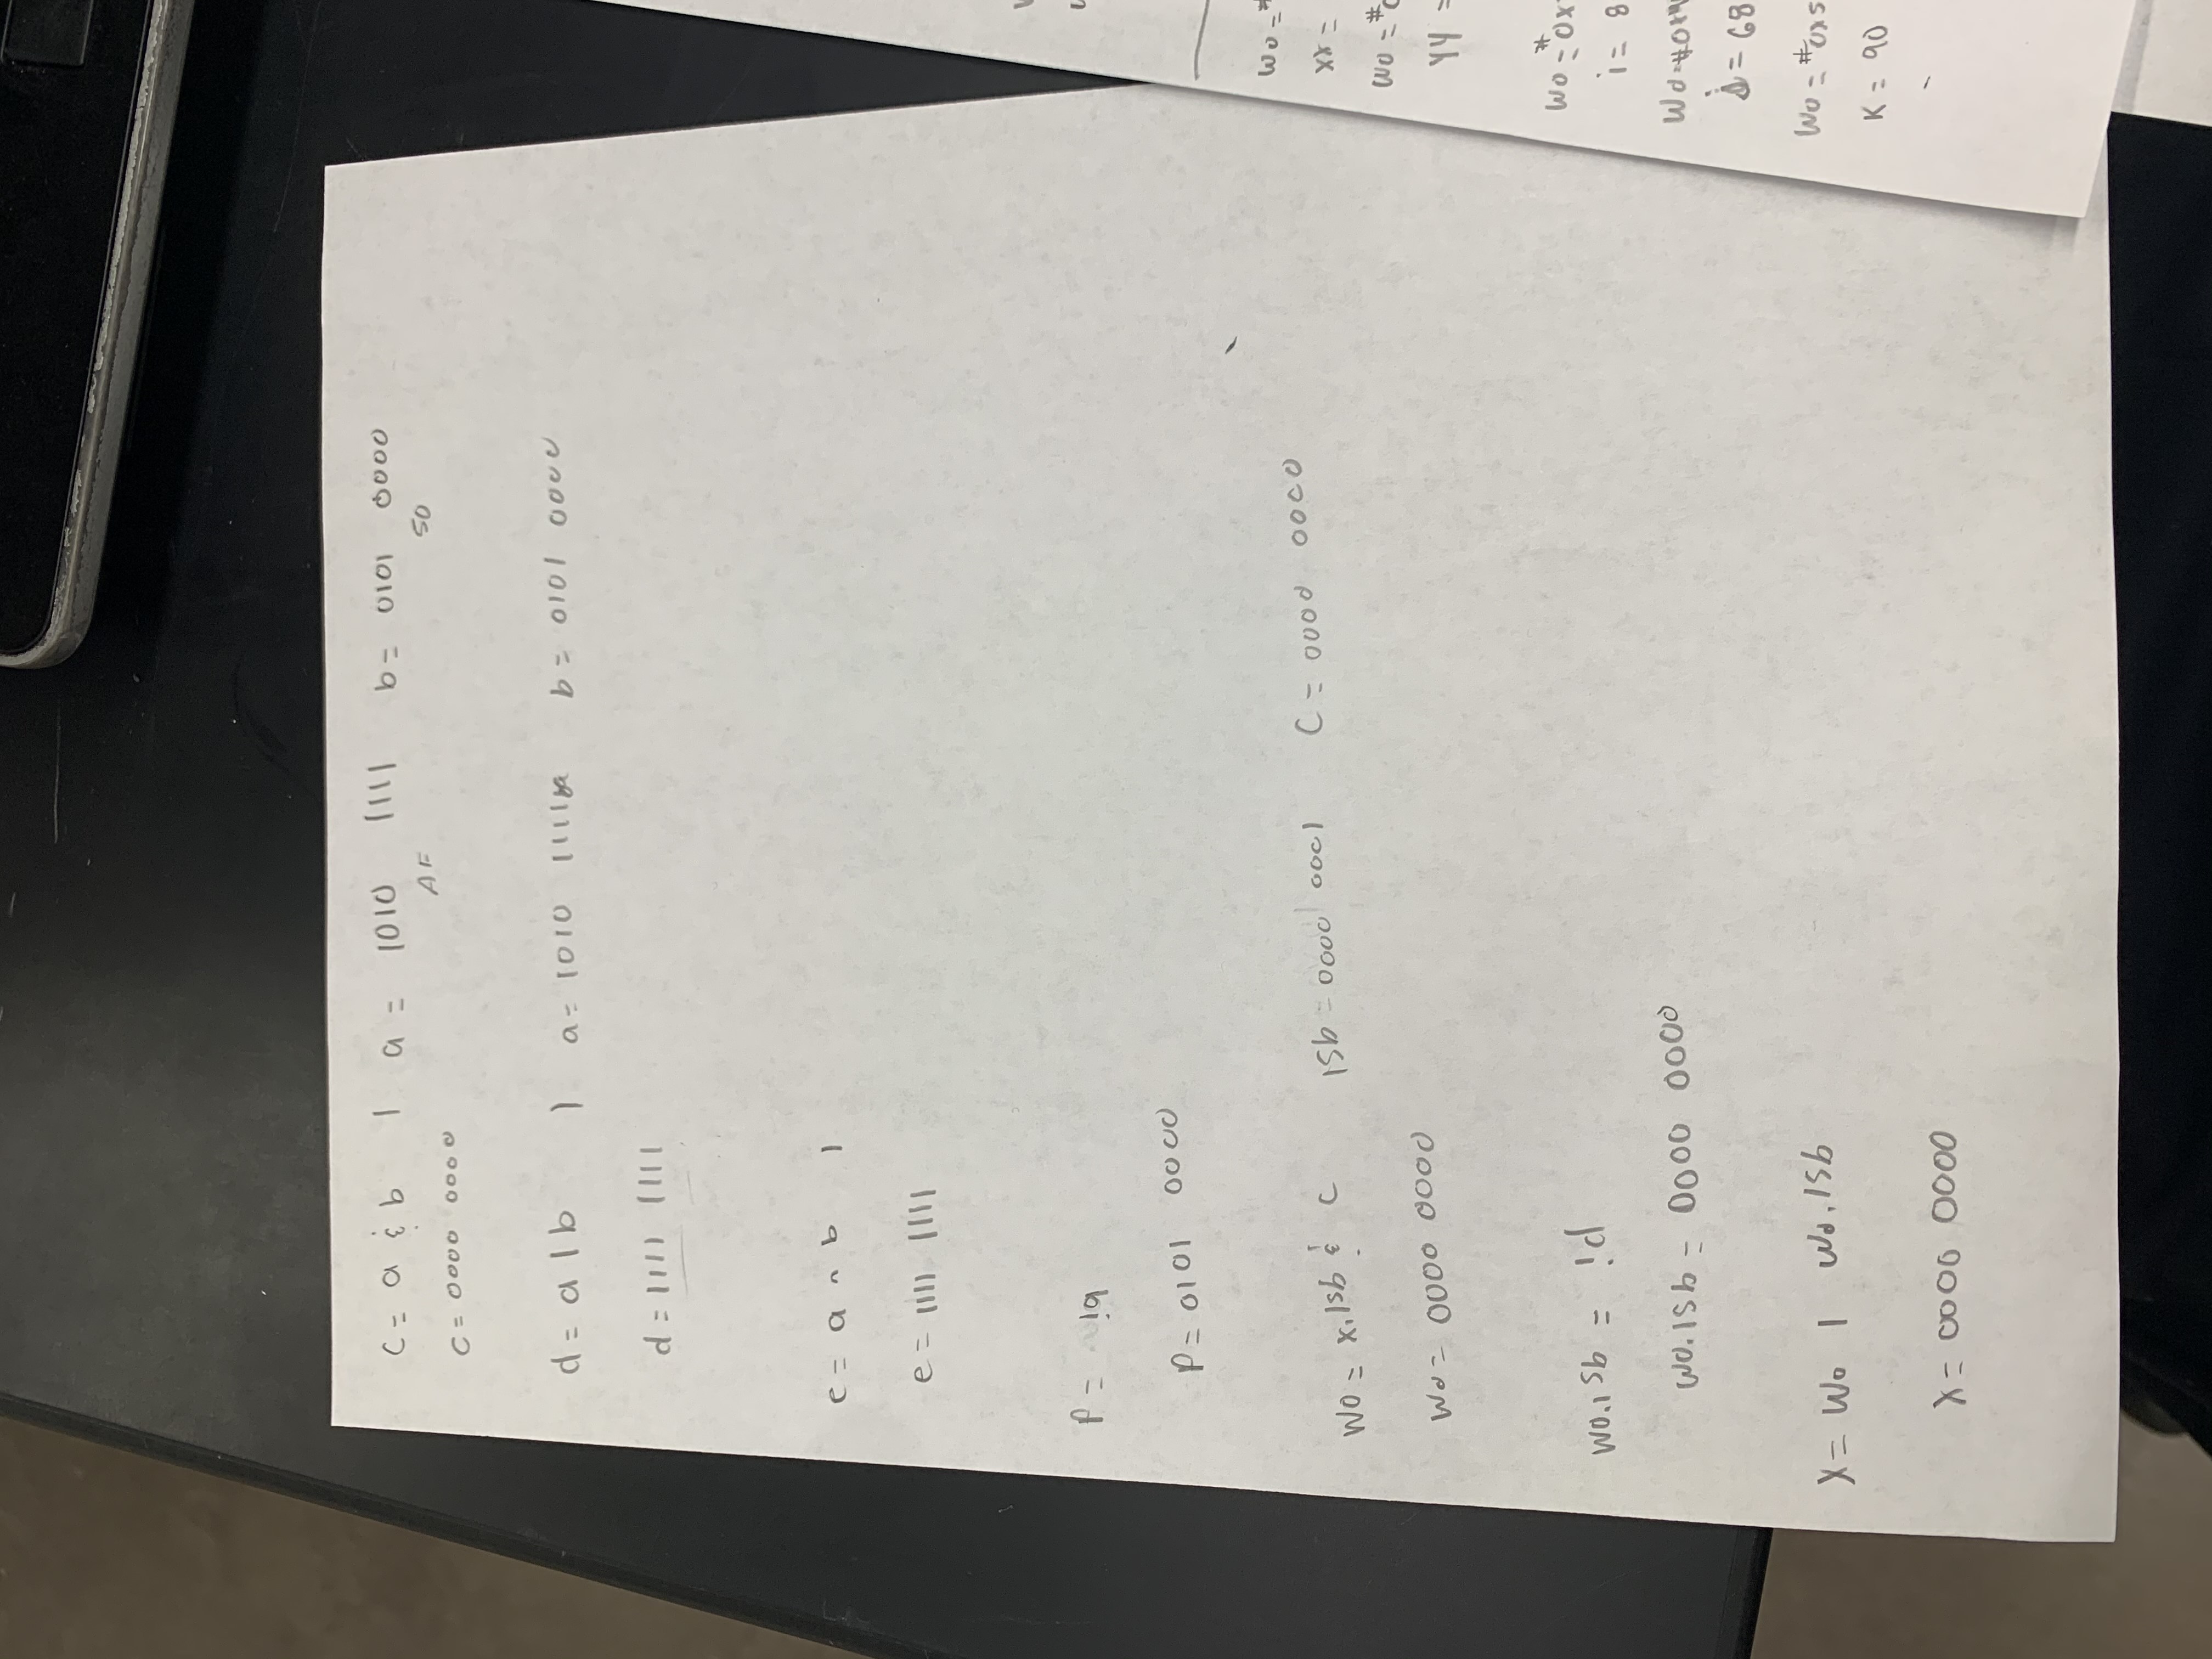 c = a & b | a = 1010 1111 b = 0101 0000
AF 50
c = 0000 0000
d = a | b | a = 1010 1111 b = 0101 0000
d = 1111 1111
e = a ^ b |
e = 1111 1111
P = !a
P = 0101 0000
W0 = x.lsb & c lsb = 0000 0001 C = 0000 0000
W0 = 0000 0000
W0.lsb = !d
W0.lsb = 0000 0000
X = W0 | W0.lsb
X = 0000 0000
W0 = #
XX =
W0 = #0
YY =
W0 = #0x
i = 8
W0 = #0x4
j = 68
W0 = #0x5
K = 90